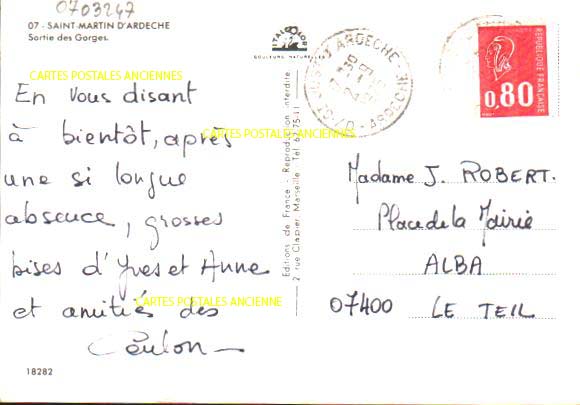 0703247
07 - SAINT-MARTIN D'ARDECHE
Sortie des Gorges.
CARTES POSTALES ANCIENNES
En vous disant
à bientôt, après
CARTES POSTALES ANCIENNES
une si longue
absence, grosses
bises d'Yves et Anne
CARTES POSTALES ANCIENNE
et amitiés des
18282
COULEURS NATURELLES
Editions de France - Reproduction interdite
2 rue Clapier Marseille Tel 67-75-11
ARDECHE
07
ARDECHE
REPUBLIQUE FRANÇAISE
0,80
Madame J. ROBERT.
Place de la Mairie
ALBA
07400 LE TEIL